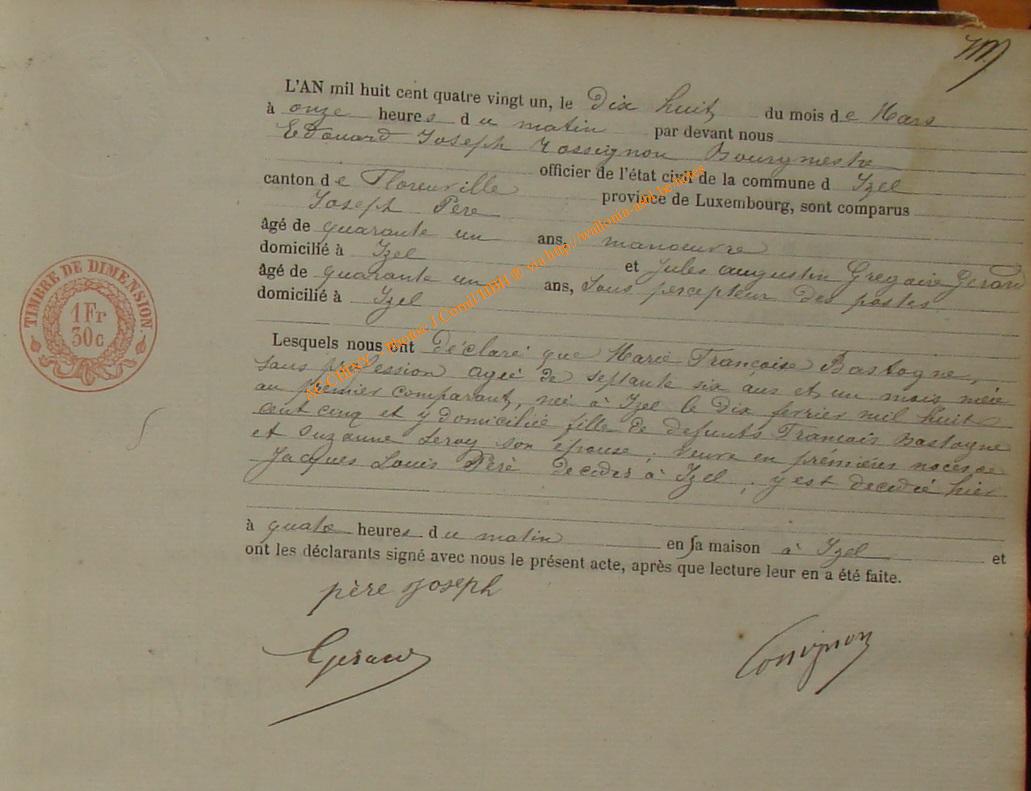 L'AN mil huit cent quatre vingt un, le Dix huit du mois de Mars
à onze heures du matin par devant nous
Edouard Joseph Rossignon Bourgmestre
officier de l'état civil de la commune d Izel
canton de Florenville province de Luxembourg, sont comparus
Joseph Père
âgé de quarante un ans, manoeuvre
domicilié à Izel et Jules augustin Gregoire Gerard
âgé de quarante un ans, Sous percepteur des postes
domicilié à Izel
Lesquels nous ont déclaré que Marie Françoise Bastogne,
sans profession agée de septante six ans et un mois mère
au premier comparant, née à Izel le dix fevrier mil huit
cent cinq et y domiciliée fille de defunts Francois Bastogne
et Suzanne Leroy son épouse, veuve en prémières noces de
Jacques Louis Père decedés à Izel, y est decedée hier
à quatre heures du matin en sa maison à Izel et
ont les déclarants signé avec nous le présent acte, après que lecture leur en a été faite.
père Joseph
Gerard
Rossignon
TIMBRE DE DIMENSION.
1 Fr
30 c